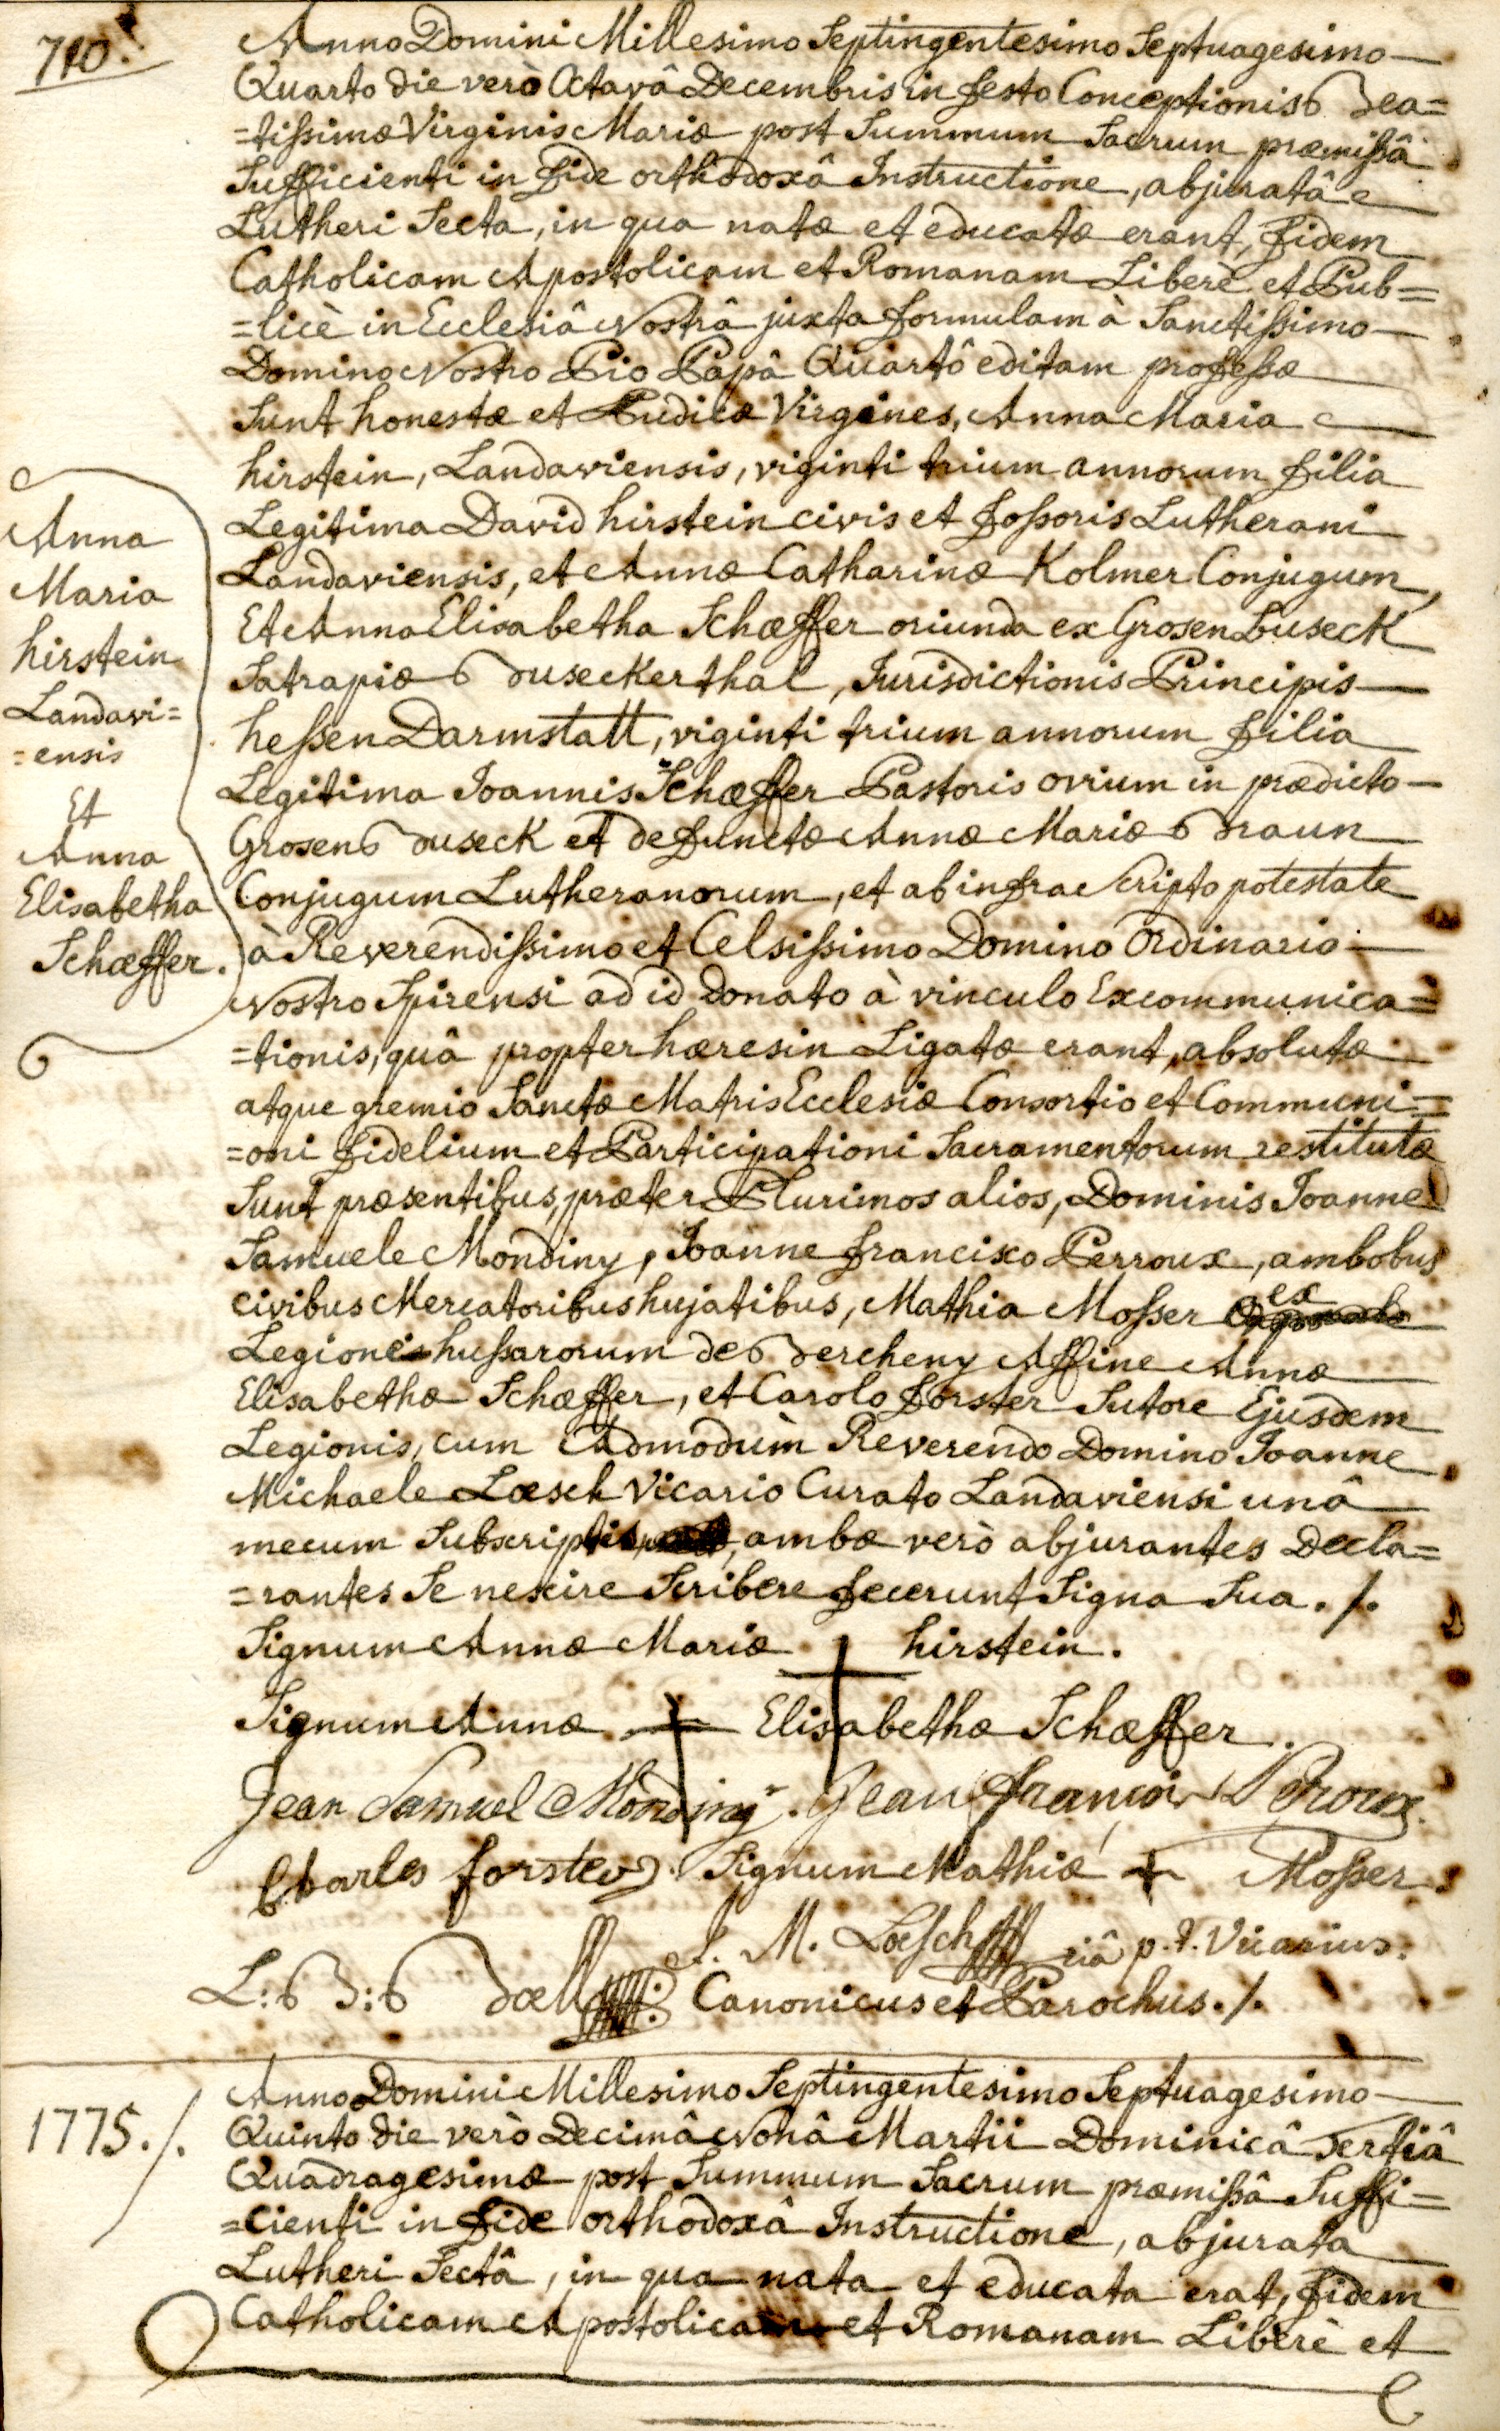 710.
Anno Domini Millesimo Septingentesimo Septuagesimo
Quarto die verò Octavâ Decembris in festo Conceptionis Bea=
=tissimæ Virginis Mariæ post Summum Sacrum præmissâ
Sufficienti in fide orthodoxâ Instructione, abjuratâ
Lutheri Secta, in qua natæ et educatæ erant, fidem
Catholicam Apostolicam et Romanam Liberè et Pub=
=licè in Ecclesiâ Nostrâ juxta formulam à Sanctissimo
Domino Nostro Pio Papâ Quartô editam professæ
Sunt honestæ et Pudicæ Virgines, Anna Maria
hirstein, Landaviensis, viginti trium annorum filia
Legitima David hirstein civis et fossoris Lutherani
Landaviensis, et Annæ Catharinæ Kolmer Conjugum,
Et Anna Elisabetha Schæffer oriunda ex Grosen Buseck
Satrapiæ Buseckerthal, Jurisdictionis Principis
hessen Darmstatt, viginti trium annorum filia
Legitima Joannis Schæffer Pastoris ovium in prædicto
Grosen Buseck et defunctæ Annæ Mariæ Braun
Conjugum Lutheranorum, et ab infra Scripto potestate
à Reverendissimo et Celsissimo Domino Ordinario
Nostro Spirensi ad id Donato à vinculo Excommunica=
=tionis, quâ propter hæresin Ligatæ erant, absolutæ
atque gremio Sanctæ Matris Ecclesiæ Consortio et Communi=
=oni fidelium et Participationi Sacramentorum restitutæ
Sunt præsentibus, præter Plurimos alios, Dominis Joanne
Samuele Mondiny, Joanne francisco Perroux, ambobus
civibus Mercatoribus hujatibus, Mathia Mosser ex
Legione hussarorum de Bercheny Affine Annæ
Elisabethæ Schæffer, et Carolo forster Sutore Ejusdem
Legionis, cum Admodùm Reverendo Domino Joanne
Michaele Lœsch Vicario Curato Landaviensi unâ
mecum Subscriptis, ambæ verò abjurantes Decla=
=rantes Se nescire Scribere fecerunt Signa Sua. ./.
Signum Annæ Mariæ + hirstein.
Signum Annæ + Elisabethæ Schæffer.
Jean Samuel Mondiny. Jean françois Peroux.
Charles forster. Signum Mathiæ + Mosser.
J. M. Loesch p.t. Vicarius.
L: B: Bœll Canonicus et Parochus. ./.
Anna
Maria
hirstein
Landavi=
=ensis
Et
Anna
Elisabetha
Schæffer.
1775. ./.
Anno Domini Millesimo Septingentesimo Septuagesimo
Quinto die verò Decimâ Nonâ Martii Dominicâ Tertiâ
Quadragesimæ post Summum Sacrum præmissâ Suffi=
=cienti in fide orthodoxâ Instructione, abjurata
Lutheri Sectâ, in qua nata et educata erat, fidem
Catholicam Apostolicam et Romanam Liberè et